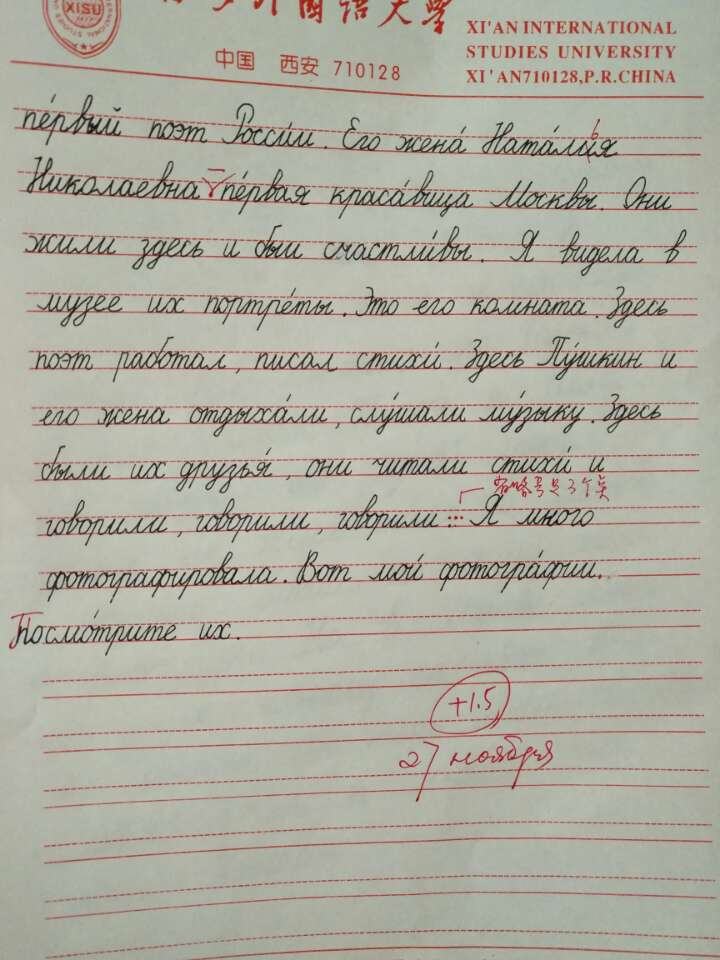 外國語大學
XI'AN INTERNATIONAL
STUDIES UNIVERSITY
XI'AN710128,P.R.CHINA
中国 西安 710128
пе́рвый поэт Росси́и. Его жена́ Ната́лия
ь
Николаевна – пе́рвая краса́вица Москвы. Они
жили здесь и были счастли́вы. Я видела в
музее их портре́ты. Это его комната. Здесь
поэт работал, писал стихи́. Здесь Пу́шкин и
его жена отдыха́ли, слу́шали му́зыку. Здесь
были их друзья́, они читали стихи́ и
省略号是3个点
говорили, говорили, говорили... Я много
фотографи́ровала. Вот мои́ фотогра́фии.
Посмо́трите их.
+1.5
27 ноября